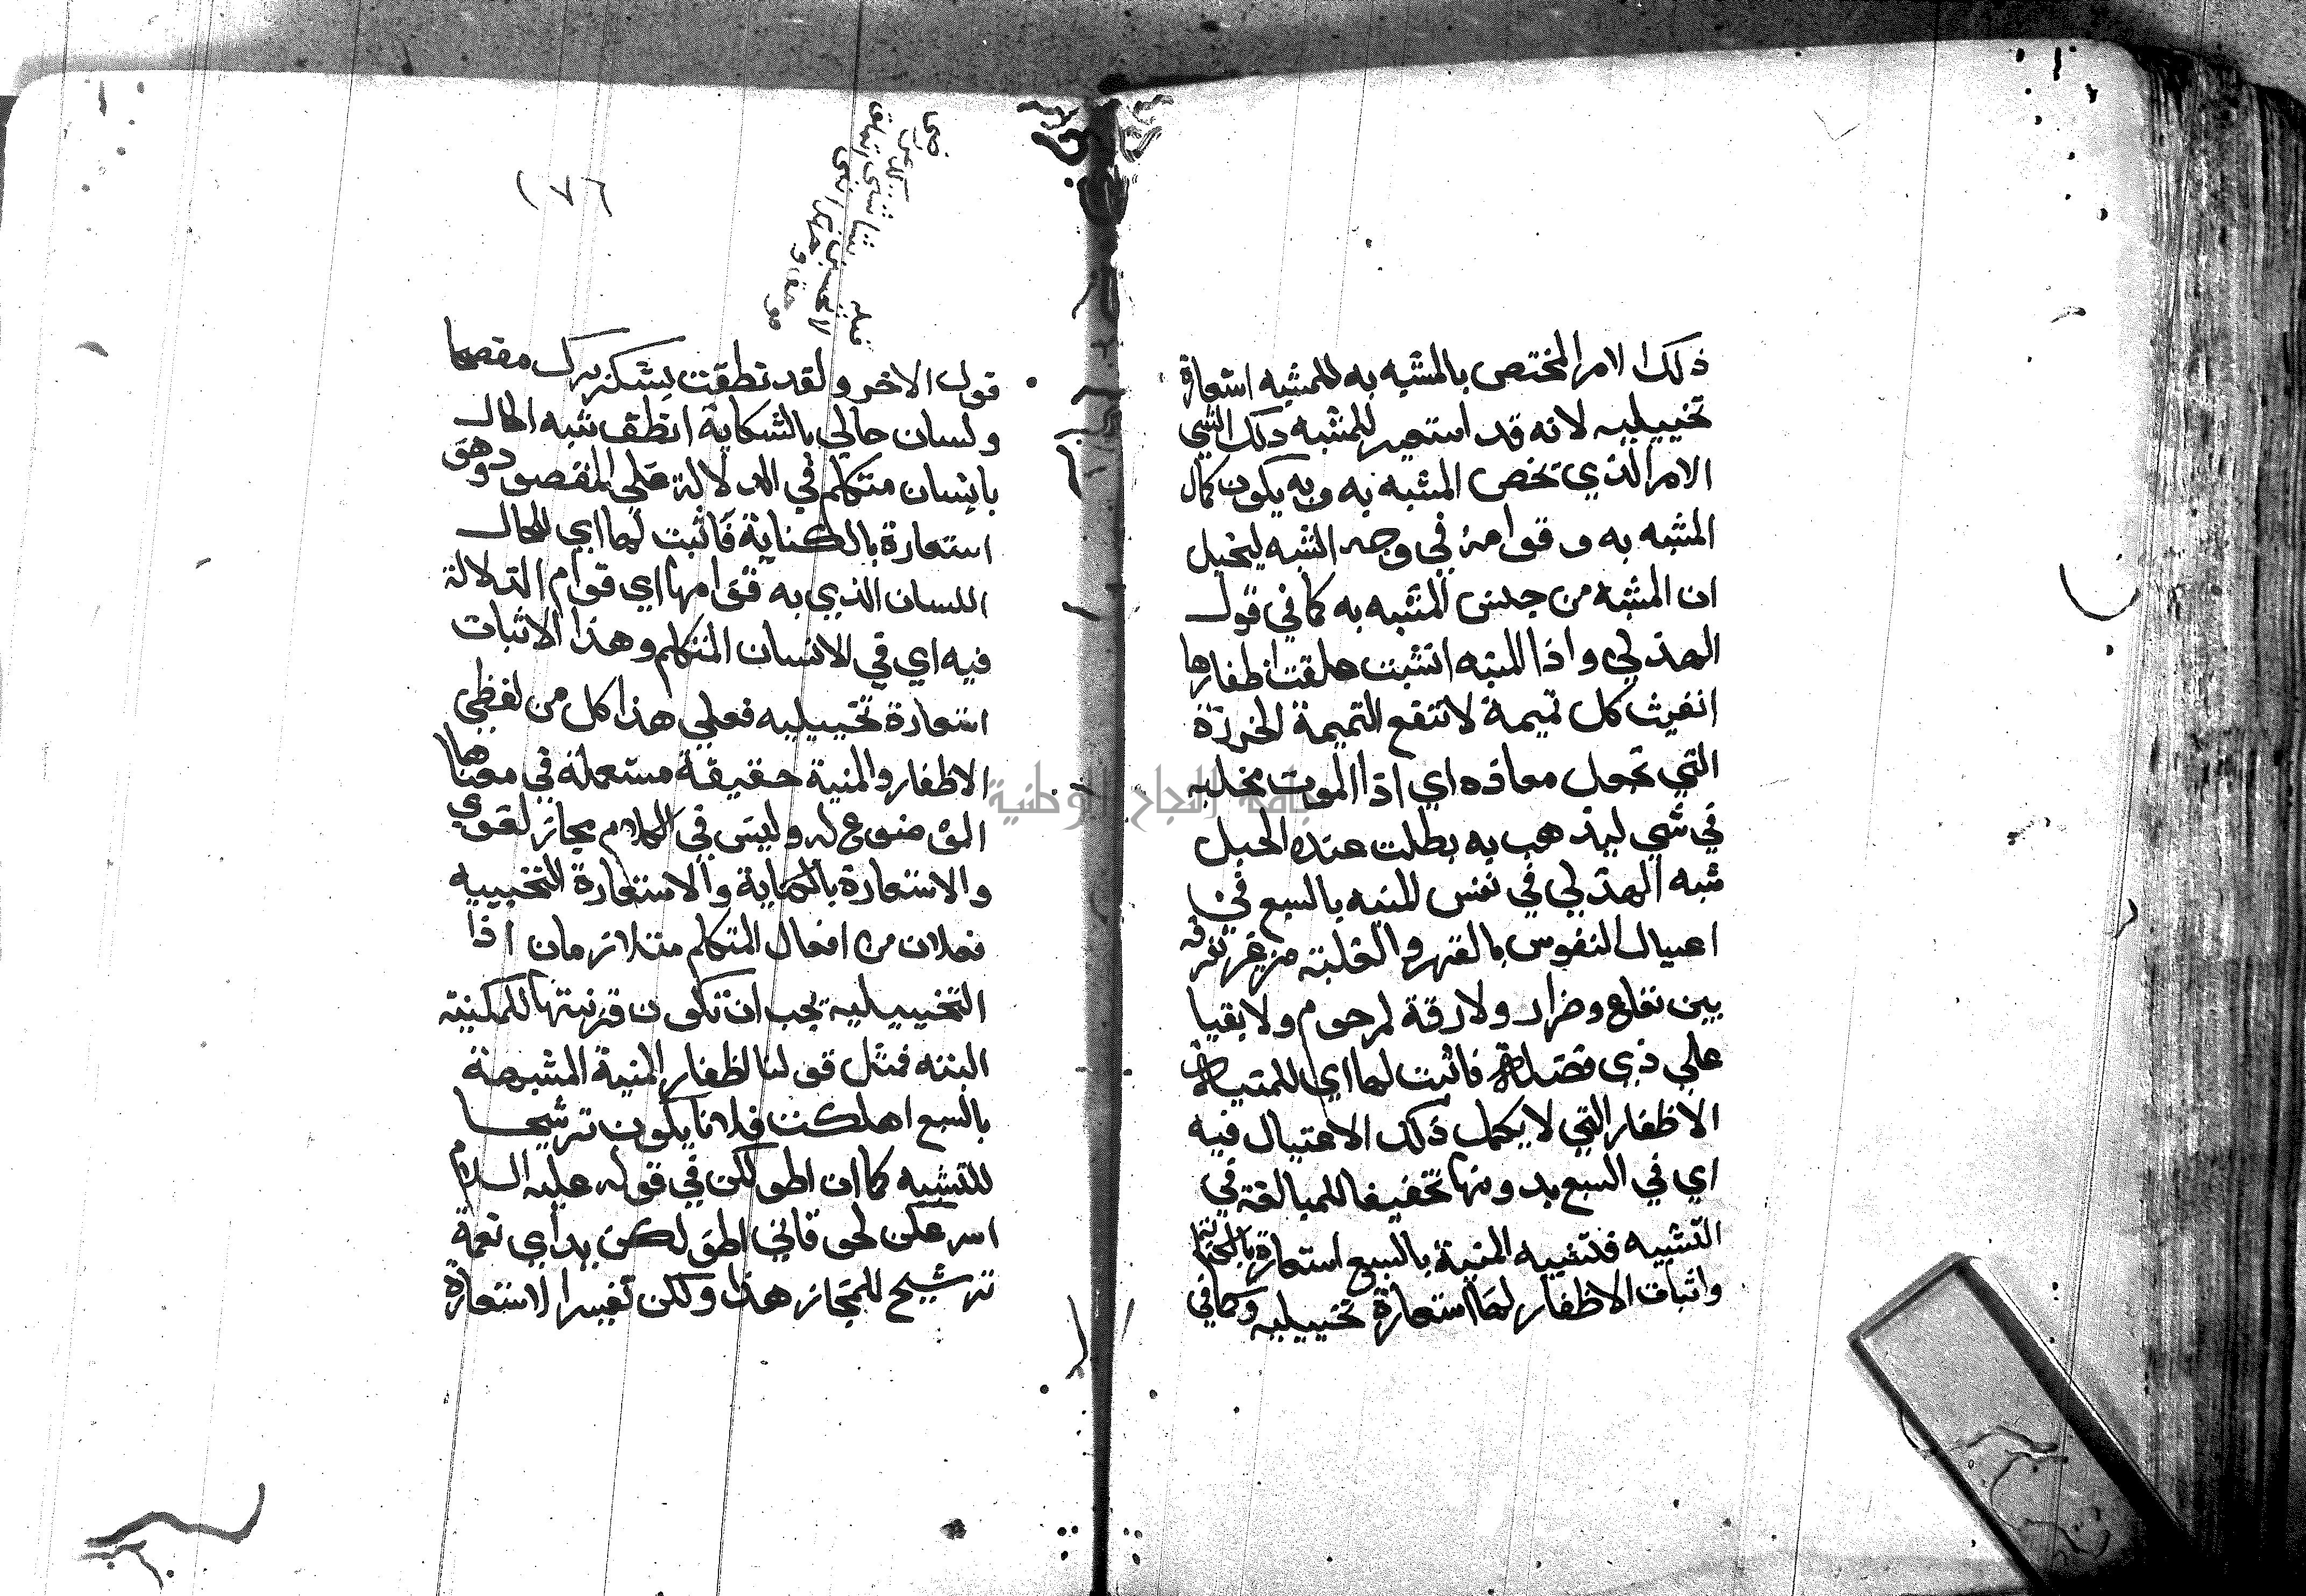 ذلك الامر المختص بالمشبه به للمشبه استعارة
تخييليه لانه قد استعير للمشبه ذلك الشي
الامر الذي يخص المشبه به وبه يكون كمال
المشبه به وقوامه في وجه الشبه ليخيل
ان المشبه من جنس المشبه به كما في قول
الهذلي واذا المنيه انشبت اظفارها
كل تميمة لا تنفع التميمة الخرزة
التي تجعل معاذه اي اذا الموت مخلبه
في شي ليذهب به بطلت عنده الحيل
شبه الهذلي في نفس المنيه بالسبع في
اغتيال النفوس بالقهر والغلبة من غير تفرقه
بين نفاع وضرار ولا رقة لمرحوم ولا بقيا
علي ذي فاثبت لها اي للمنية
الاظفار التي لا يكمل ذلك الاغتيال فيه
اي في السبع بدونها تحقيقا للمبالغة في
التشبيه فتشبيه المنية بالسبع استعارة بالكناية
واثبات الاظفار لها استعارة تخييليه وكما في
١٧٦
قول الاخر ولقد نطقت بشكر برك مفصحا
ولسان حالي بالشكاية انطق شبه الحال
بانسان متكلم في الدلالة علي المقصود وهو
استعارة بالكناية فاثبت لها اي للحال
اللسان الذي به قوامها اي قوام الدلالة
فيه اي في الانسان المتكلم وهذا الاثبات
استعارة تخييليه فعلي هذا كل من لفظي
الاظفار والمنية حقيقة مستعملة في معناها
الموضوع له وليس في الكلام مجاز لغوي
والاستعارة بالكناية والاستعارة التخييليه
فعلان من افعال المتكلم متلازمان اذا
التخييليه يجب ان تكون قرينتها للمكنيته
البته فمثل قولنا اظفار المنية المشبهة
بالسبع اهلكت فلانا يكون ترشيحا
للتشبيه كما ان اطولكن في قوله عليه السلام
اسرعكن لحوقا بي اطولكن يدا اي نعمة
ترشيح للمجاز هذا ولكن تفسير الاستعارة
جامعة النجاح الوطنية